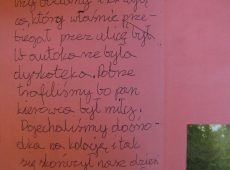 cą, który właśnie prze-
biegał przez ulicę był.
W autokarze była
dyskoteka. Potne
trafiliśmy bo pan
kierowca był miły.
Dojechaliśmy do oś-
odka na kolację i tak
się skończył nasz dzień